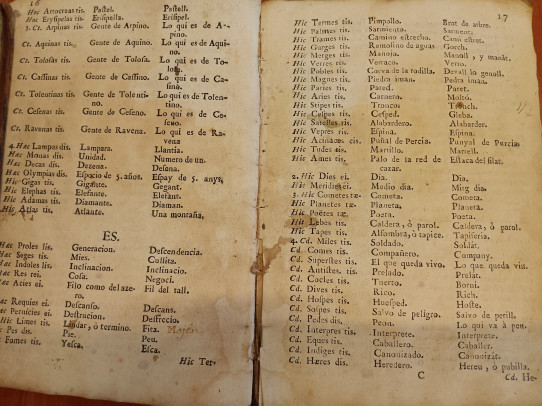 16
Hac Artocreas tis. Pastel. Pastell.
Hac Erysipelas tis. Erisipella. Erisipel.
3. Ct. Arpinas tis. Gente de Arpino. Lo qui es de Arpino.
Ct. Aquinas tis. Gente de Aquino. Lo qui es de Aquino.
Ct. Tolosas tis. Gente de Tolosa. Lo qui es de Tolosa.
Ct. Cassinas tis. Gente de Cassino. Lo qui es de Cassinà.
Ct. Tolentinas tis. Gente de Tolentino. Lo qui es de Tolentino.
Ct. Cesenas tis. Gente de Ceseno. Lo qui es de Ceseno.
Ct. Ravenas tis. Gente de Ravena. Lo qui es de Ravena
4. Hac Lampas dis. Lampara. Llantia.
Hac Monas dis. Unidad. Número de un.
Hac Decas dis. Dezena. Desena.
Hac Olympias dis. Espacio de 5. años. Espay de 5. anys,
Hic Gigas tis. Gigante. Gegant.
Hic Elephas tis. Elefante. Elefant.
Hic Adamas tis. Diamante. Diamant.
Hic Atlas tis. Atlante. Una montaña,
ES.
Hac Proles lis. Generacion. Descendencia.
Hac Seges tis. Mies. Cullita.
Hac Indoles lis. Inclinacion. Inclinacio.
Hac Res rei. Cosa. Negoci.
Hac Acies ei. Filo como de azero. Fil del tall.
Hac Requies ei. Descanso. Descans.
Pernicies ei. Destruccion.
Hic Limes tis. Lindar, ò termino. Fita.
Pes dis. Pie. Peu.
Fomes tis. Yesca. Esca.
Hic Ter-
17
Hic Termes tis. Pimpollo. Brot de arbre.
Hic Palmes tis. Sarmiento. Sarment.
Hic Trames tis. Camino estrecho. Camí estret.
Hic Gurges tis. Remolino de aguas Gorch.
Hic Merges tis. Manojo. Manoll, y manàt.
Hic Verres tis. Verraco. Verro.
Hic Pobles tis. Corva de la rodilla. Devall lo genoll.
Hic Magnes tis. Piedra iman. Pedra iman.
Hic Paries tis. Pared. Paret.
Hic Aries tis. Carnero. Moltó.
Hic Stipes tis. Tronco. Tronch.
Hic Cespes tis. Cesped. Gleba.
Hic Satelles tis. Alabardero. Alabarder.
Hic Vepres tis. Espina. Espina.
Hic Acinaces cis. Puñal de Percia. Punyal de Percia
Hic Tudes tis. Martillo. Martell.
Hic Ames tis. Palo de la red de cazar. Estaca del filat.
2. Hic Dies ei. Dia. Dia.
Hic Meridies ei. Medio dia. Mitg dia.
3. Hic Cometes tæ. Cometa. Cometa.
Hic Planetes tæ. Planeta. Planeta,
Hic Poëtes tæ. Poeta. Poeta.
Hic Lebes tis. Caldera, ò parol. Caldera, ò parol.
Hic Tapes tis. Alfombra, ò tapice. Tapiseria.
4. Cd. Miles tis. Soldado. Soldàt.
Cd. Comes tis. Compañero. Company.
Cd. Superstes tis. El que queda vivo. Lo que queda viu.
Cd. Antistes. tis. Prelado. Prelat.
Cd. Cocles tis. Tuerto. Borni.
Cd. Dives tis. Rico. Rich.
Cd. Hospes tis. Huesped. Hoste.
Cd. Sospes tis. Salvo de peligro. Salvo de perill.
Cd. Pedes dis. Peon. Lo qui và à peu.
Cd. Interpres tis. Interprete. Interprete.
Cd. Eques tis. Caballero. Caballer.
Cd. Indiges tis. Canonizado. Canonizàt.
Cd. Hæres dis. Heredero. Hereu, ò pubilla.
C Cd. He-